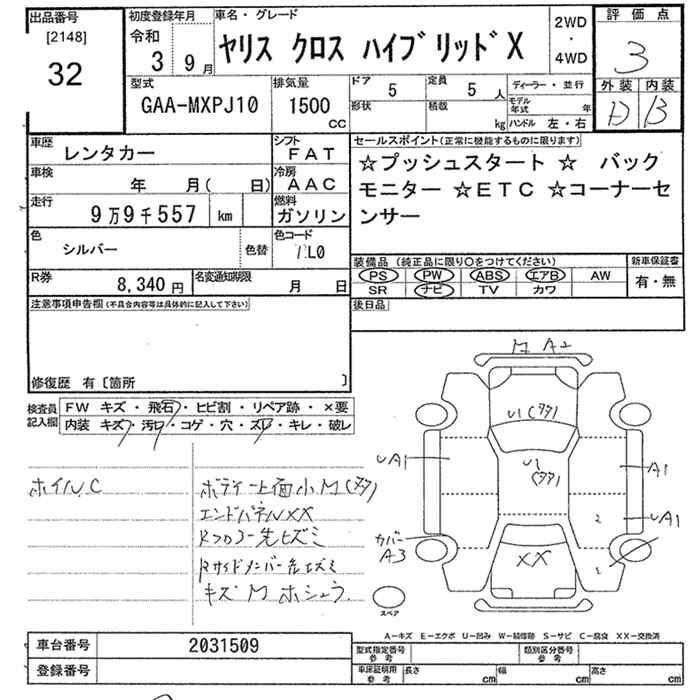 出品番号
[2148]
32
初度登録年月
令和
3 9月
車名・グレード
ヤリス クロス ハイブリッドX
2WD
・
4WD
評価点
3
外装 内装
D B
型式
GAA-MXPJ10
排気量
1500
CC
ドア 5
定員 5 人
形状
積載 kg
ディーラー・並行
モデル年式 年
ハンドル 左・右
車歴 レンタカー
シフト FAT
車検 年 月( 日)
冷房 AAC
走行 9万9千557 km
燃料 ガソリン
色 シルバー 色替
色コード 1L0
R券 8,340 円
名変通知期限 月 日
セールスポイント(正常に機能するものに限ります)
☆プッシュスタート ☆ バック
モニター ☆ETC ☆コーナーセ
ンサー
装備品 (純正品に限り○をつけてください)
PS PW ABS エアB AW
SR ナビ TV カワ
新車保証書
有・無
後日品
注意事項申告欄(不具合内容等は具体的に記入して下さい)
修復歴 有〔箇所 〕
検査員
記入欄
FW キズ・飛石・ヒビ割・リペア跡・×要
内装 キズ・汚れ・コゲ・穴・スレ・キレ・破レ
ホイルC
ボディー上面小M(タタ)
エンドパネルXX
Rフロアー先ヒズミ
Rサイドメンバー先ヒズミ
キズM ホシュウ
M A2
U1(タタ)
UA1
U1
(タタ)
A1
2
UA1
カバー
A3
XX
スペア
A-キズ E-エクボ U-凹み W-補修跡 S-サビ C-腐食 XX-交換済
車台番号 2031509
登録番号
型式指定番号
参考
類別区分番号
参考
車庫証明用
参考
長さ cm
幅 cm
高さ cm